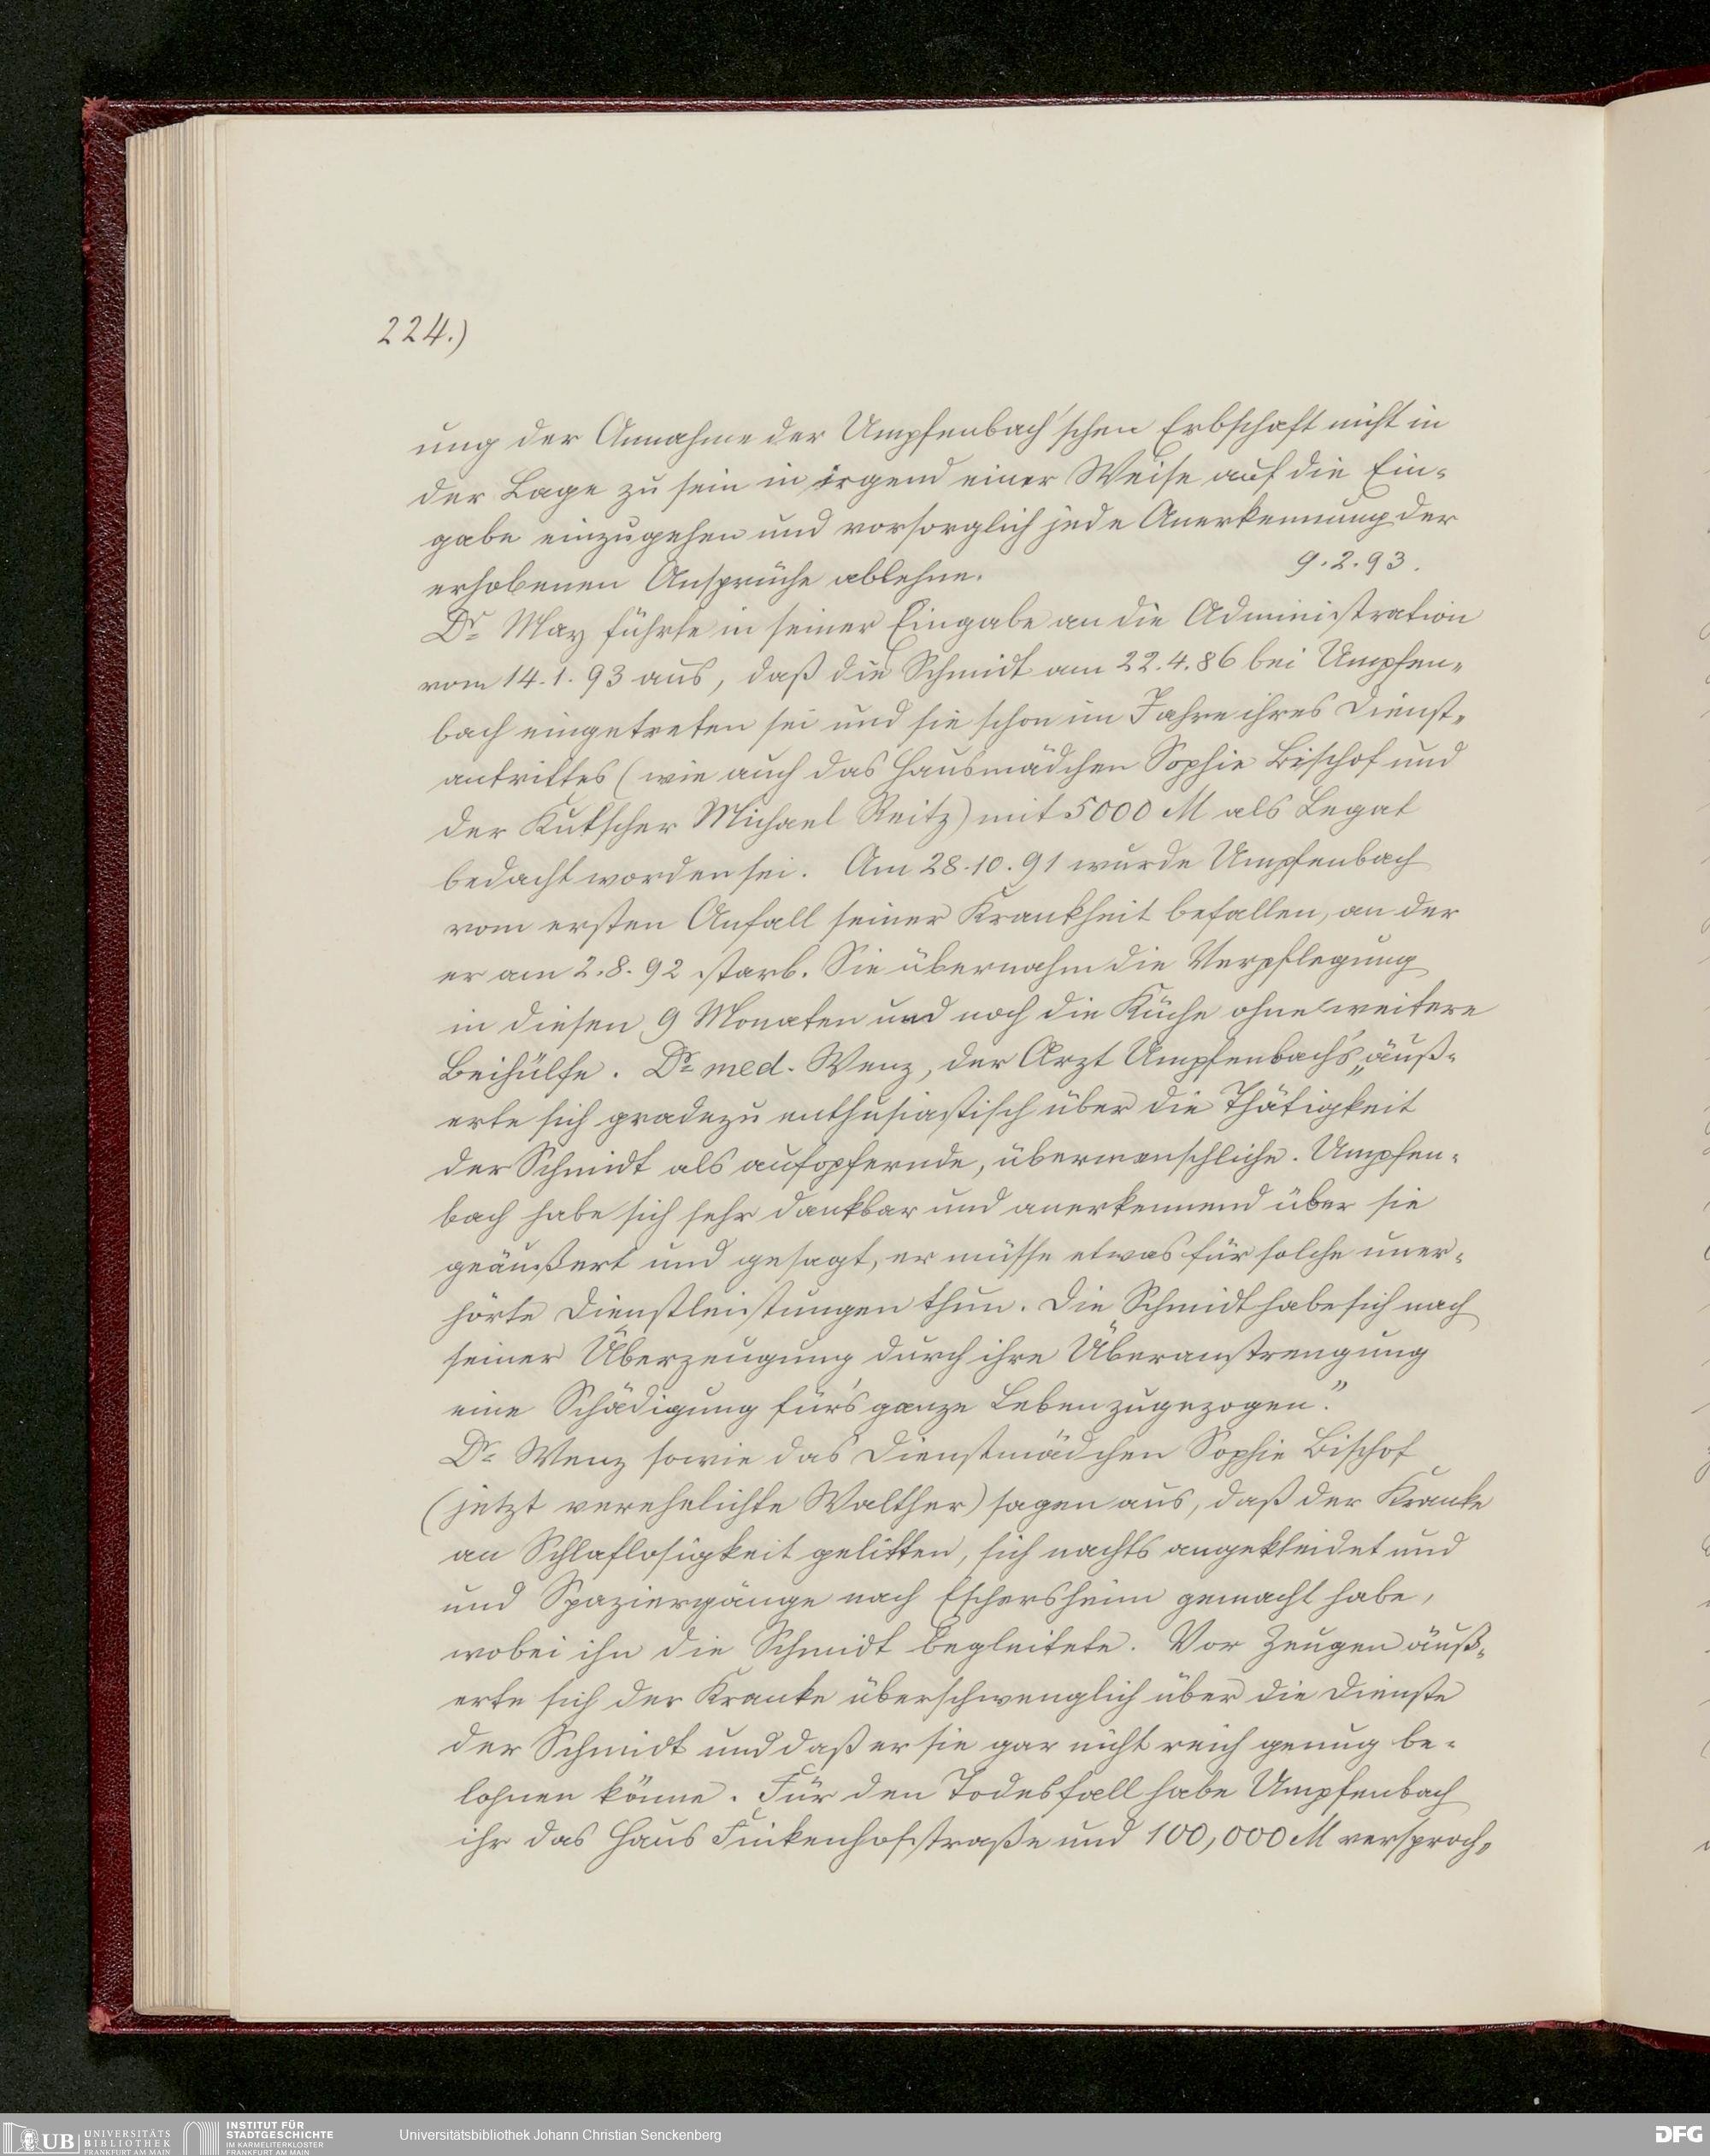 224.)
ung der Annahme der Umpfenbach'schen Erbschaft nicht in
der Lage zu sein in irgend einer Weise auf die Ein-
gabe einzugehen und vorsorglich jede Anerkennung der
erhobenen Ansprüche ablehne. 9.2.93.
Dr. May führte in seiner Eingabe an die Administration
vom 14.1.93 aus, daß die Schmidt am 22.4.86 bei Umpfen-
bach eingetreten sei und sie schon im Jahre ihres Dienst-
antrittes (wie auch das Hausmädchen Sophie Bischof und
der Kutscher Michael Reitz) mit 5000 M als Legat
bedacht worden sei. Am 28.10.91 wurde Umpfenbach
vom ersten Anfall seiner Krankheit befallen, an der
er am 2.8.92 starb. Sie übernahm die Verpflegung
in diesen 9 Monaten und noch die Küche ohne weitere
Beihülfe. Dr. med. Wenz, der Arzt Umpfenbach's „äuß-
erte sich gradezu enthusiastisch über die Thätigkeit
der Schmidt als aufopfernde, übermenschliche. Umpfen-
bach habe sich sehr dankbar und anerkennend über sie
geäußert und gesagt, er müsse etwas für solche uner-
hörte Dienstleistungen thun. Die Schmidt habe sich nach
seiner Überzeugung durch ihre Überanstrengung
eine Schädigung für's ganze Leben zugezogen."
Dr. Wenz sowie das Dienstmädchen Sophie Bischof
(jetzt verehelichte Walther) sagen aus, daß der Kranke
an Schlaflosigkeit gelitten, sich nachts angekleidet und
und Spaziergänge nach Eschersheim gemacht habe,
wobei ihn die Schmidt begleitete. Vor Zeugen äuß-
erte sich der Kranke überschwenglich über die Dienste
der Schmidt und daß er sie gar nicht reich genug be-
lohnen könne. Für den Todesfall habe Umpfenbach
ihr das Haus Finkenhofstraße und 100,000 M versproch-
UB UNIVERSITÄTS
BIBLIOTHEK
FRANKFURT AM MAIN
INSTITUT FÜR
STADTGESCHICHTE
IM KARMELITERKLOSTER
FRANKFURT AM MAIN
Universitätsbibliothek Johann Christian Senckenberg
DFG